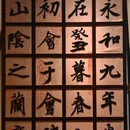 永和九年
在癸暮春
初會于會
山陰之蘭